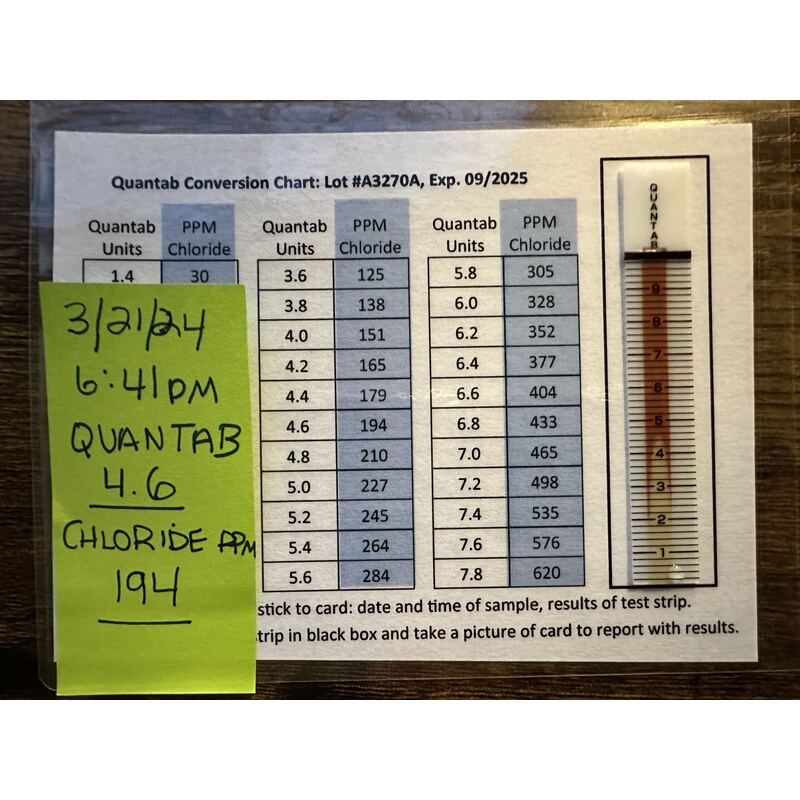 Quantab Conversion Chart: Lot #A3270A, Exp. 09/2025
Quantab Units PPM Chloride
1.4 30
Quantab Units PPM Chloride
3.6 125
3.8 138
4.0 151
4.2 165
4.4 179
4.6 194
4.8 210
5.0 227
5.2 245
5.4 264
5.6 284
Quantab Units PPM Chloride
5.8 305
6.0 328
6.2 352
6.4 377
6.6 404
6.8 433
7.0 465
7.2 498
7.4 535
7.6 576
7.8 620
QUANTAB
9
8
7
6
5
4
3
2
1
3/21/24
6:41PM
QUANTAB
4.6
CHLORIDE PPM
194
stick to card: date and time of sample, results of test strip.
trip in black box and take a picture of card to report with results.